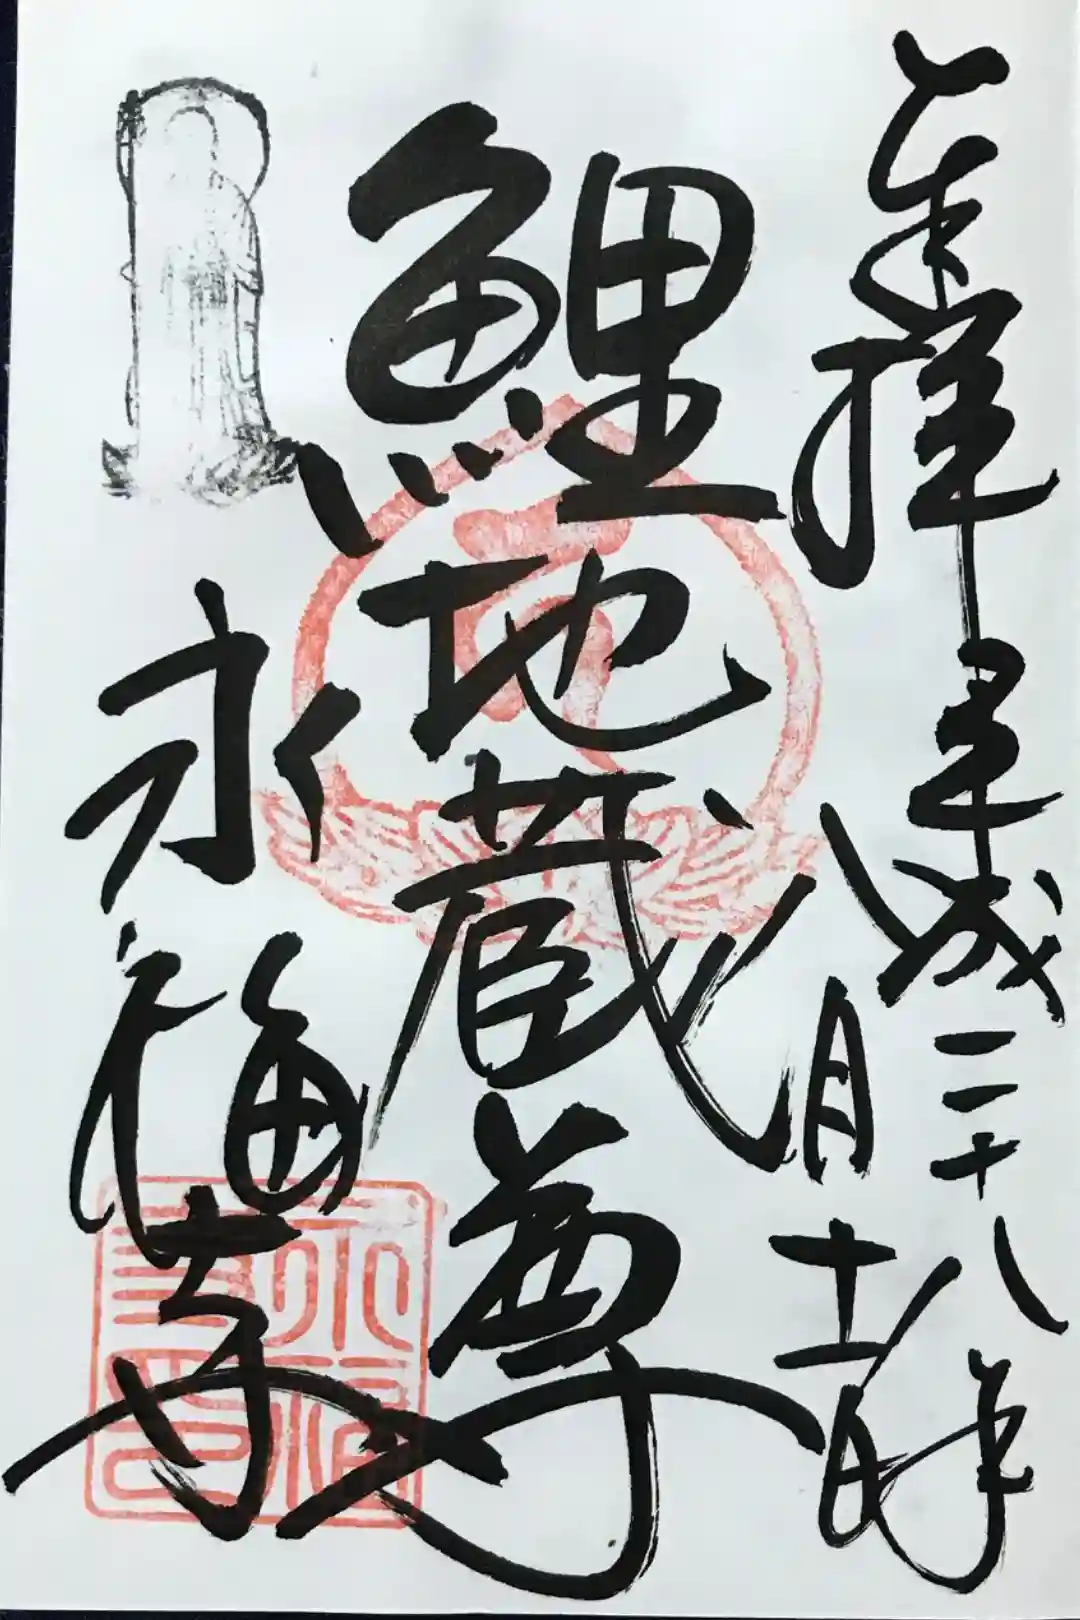 奉拝 平成二十八年
八月十一日
鯉地蔵尊
永福寺
永福
寺印